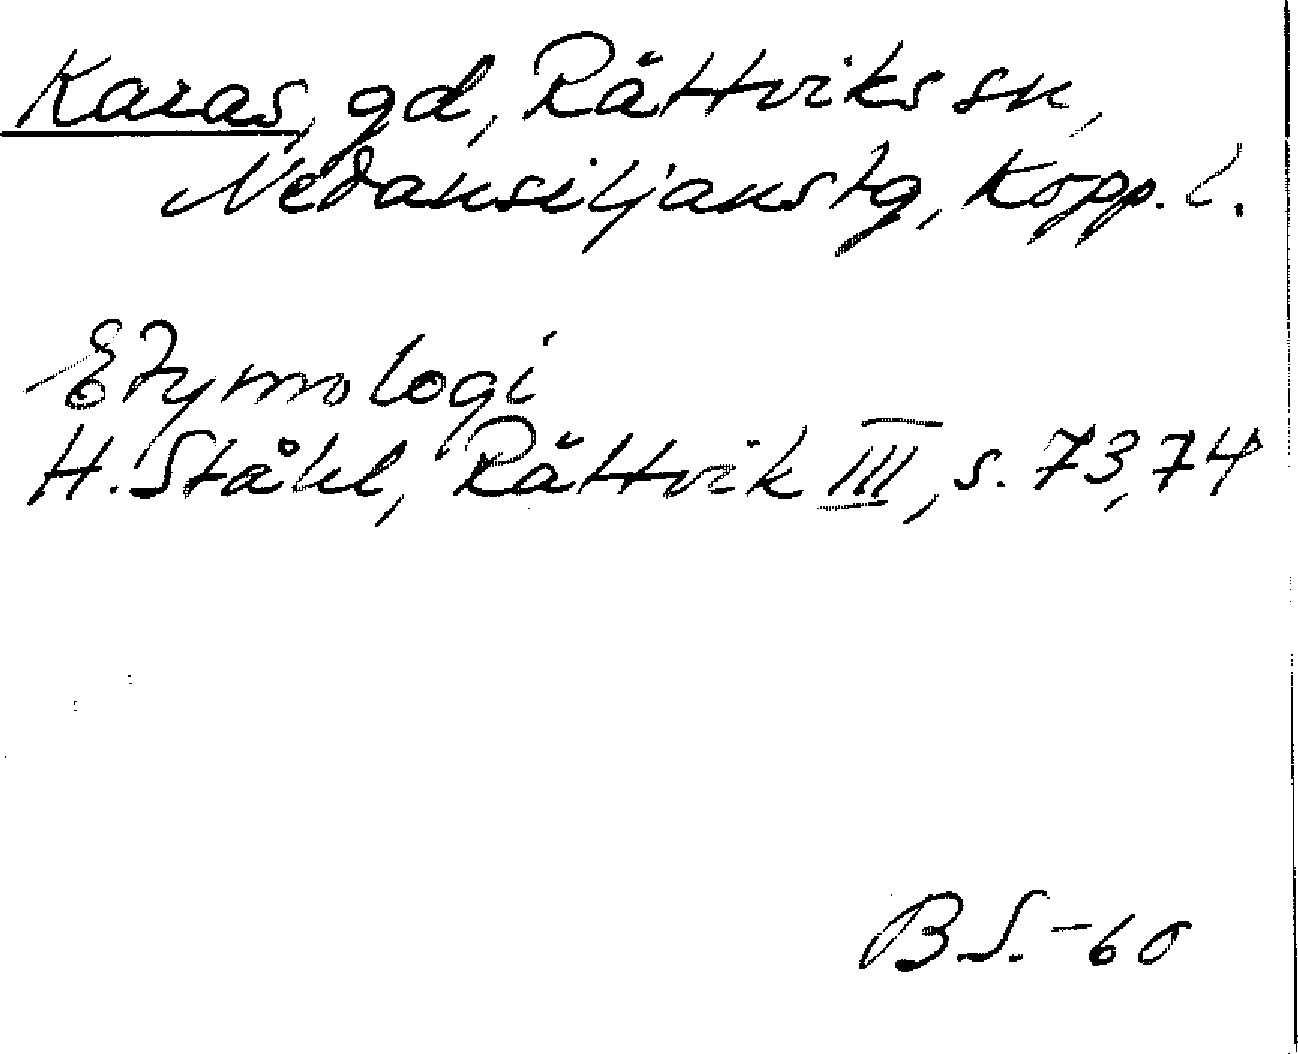 Karas, gd, Rättviks sn,
Nedansiljans tg, Kopp. l.
Etymologi
H. Ståhl, Rättvik III, s. 73, 74
B S. -60